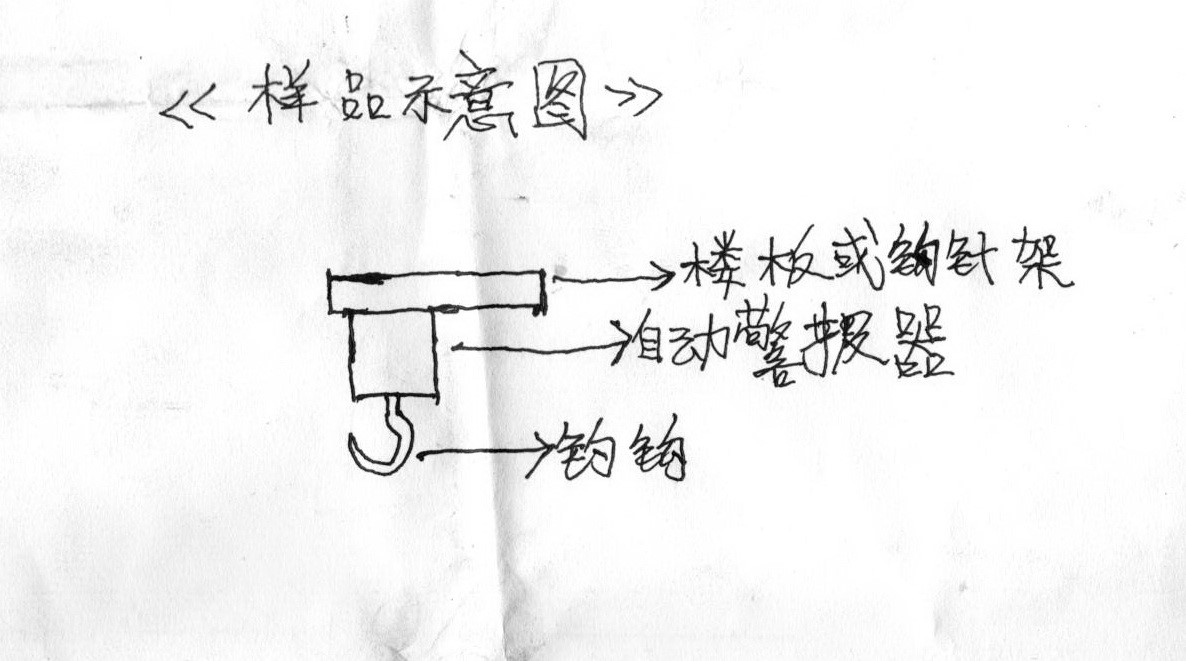 <<样品示意图>>
楼板或钩针架
自动警报器
钓钩